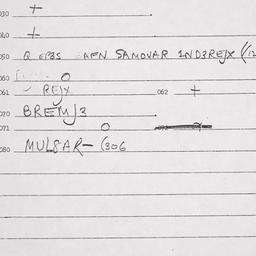 030 +
040 +
050 Q EP3S AFN SAMOVAR 1ND3REJX (/12
060 O
061 REJX 062 +
070 BREMJ3
071 O
080 MULSAR- (306